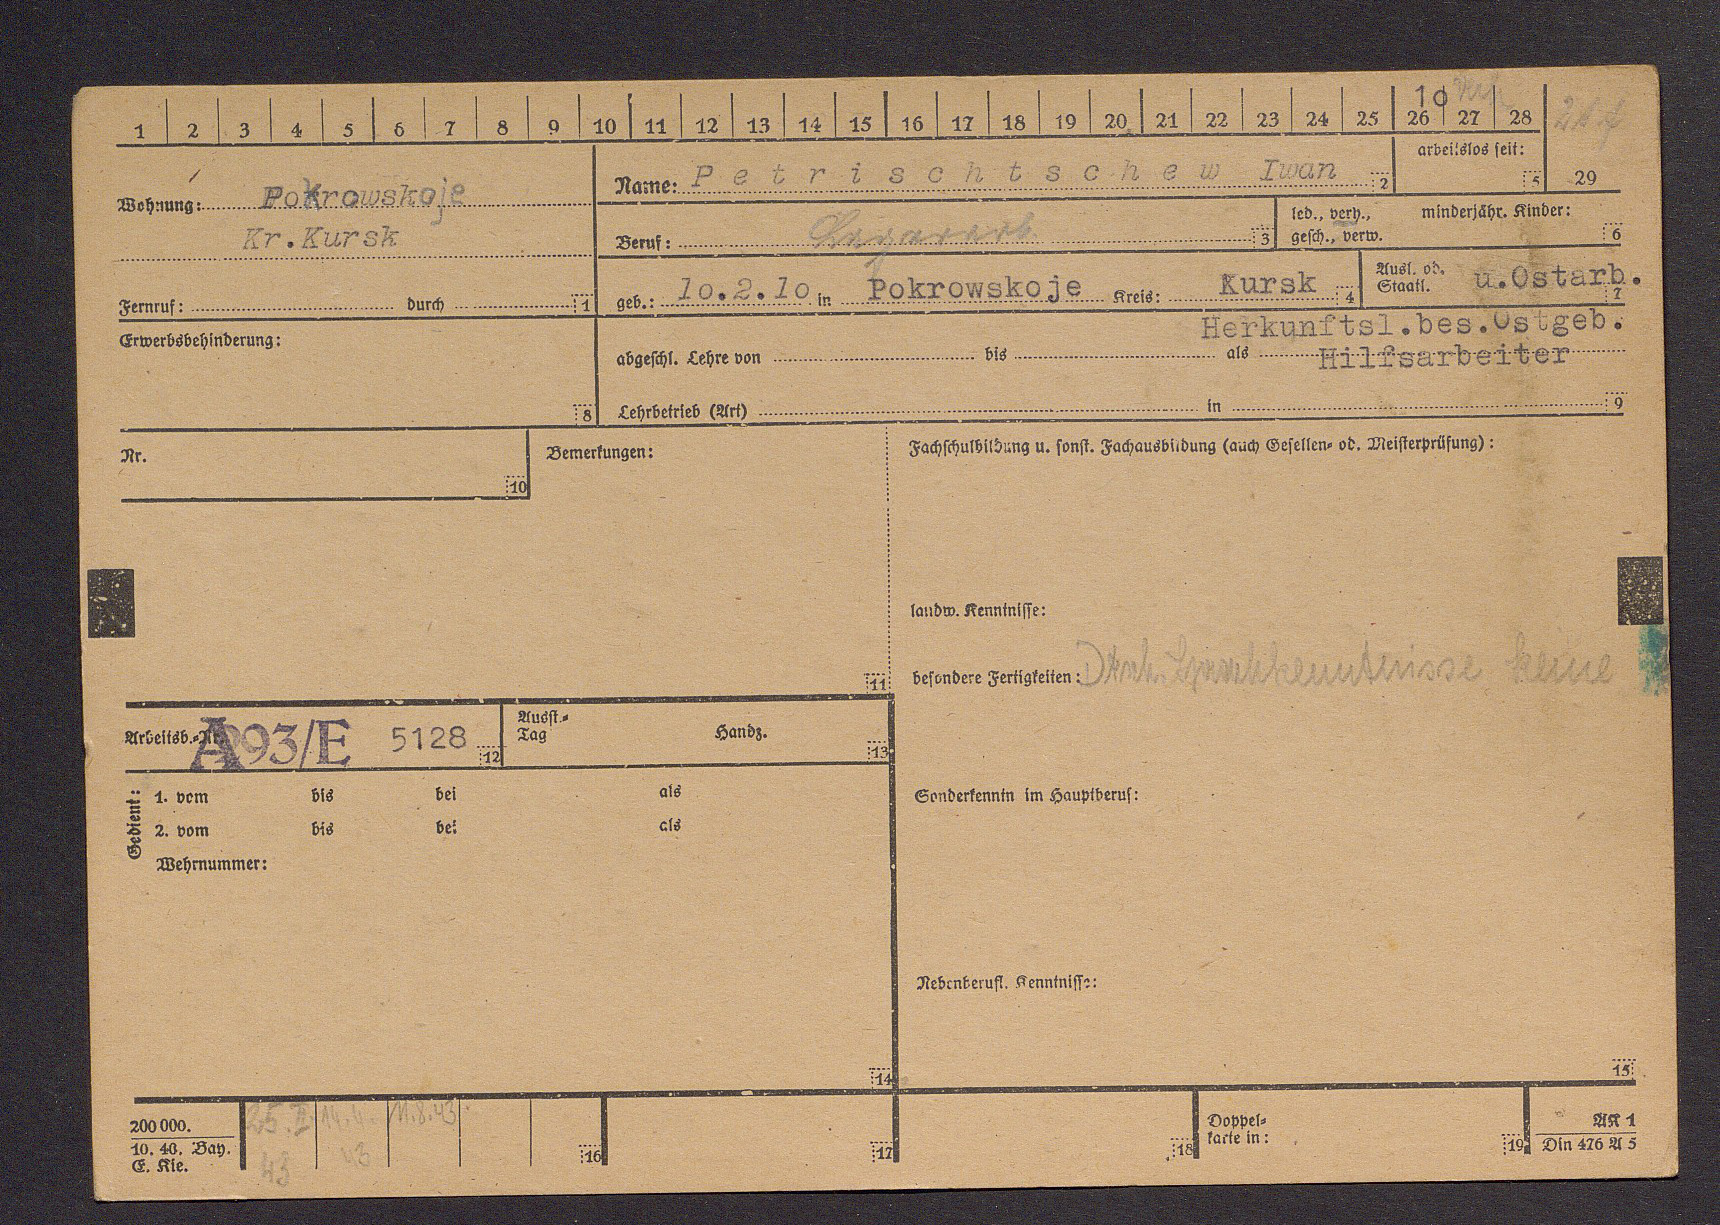 1 2 3 4 5 6 7 8 9 10 11 12 13 14 15 16 17 18 19 20 21 22 23 24 25 26 27 28
10
arbeitslos seit:
5 29
Wohnung: Pokrowskoje
Kr.Kursk
Fernruf: durch 1
Name: Petrischtschew Iwan 2
Beruf: 3
led., verh., minderjähr. Kinder:
gesch., verw. 6
geb.: 10.2.10 in Pokrowskoje Kreis: Kursk 4
Ausl. od.
Staatl. u.Ostarb. 7
Herkunftsl.bes.Ostgeb.
Erwerbsbehinderung:
8
abgeschl. Lehre von bis als Hilfsarbeiter
Lehrbetrieb (Art) in 9
Nr.
10
Bemerkungen:
11
Fachschulbildung u. sonst. Fachausbildung (auch Gesellen- od. Meisterprüfung):
landw. Kenntnisse:
besondere Fertigkeiten: Dtsch. Sprachkenntnisse keine
Arbeitsb.-Nr. A 293/E 5128 12
Ausst.-
Tag Handz.
13
Gedient:
1. vom bis bei als
2. vom bis bei als
Wehrnummer:
14
Sonderkenntn im Hauptberuf:
Nebenberufl. Kenntnisse:
15
200 000.
10. 40. Bay.
E. Kie.
25.II 43
14.4. 43
11.8.43.
16
17
18
Doppel-
karte in:
19
AK 1
Din 476 A 5